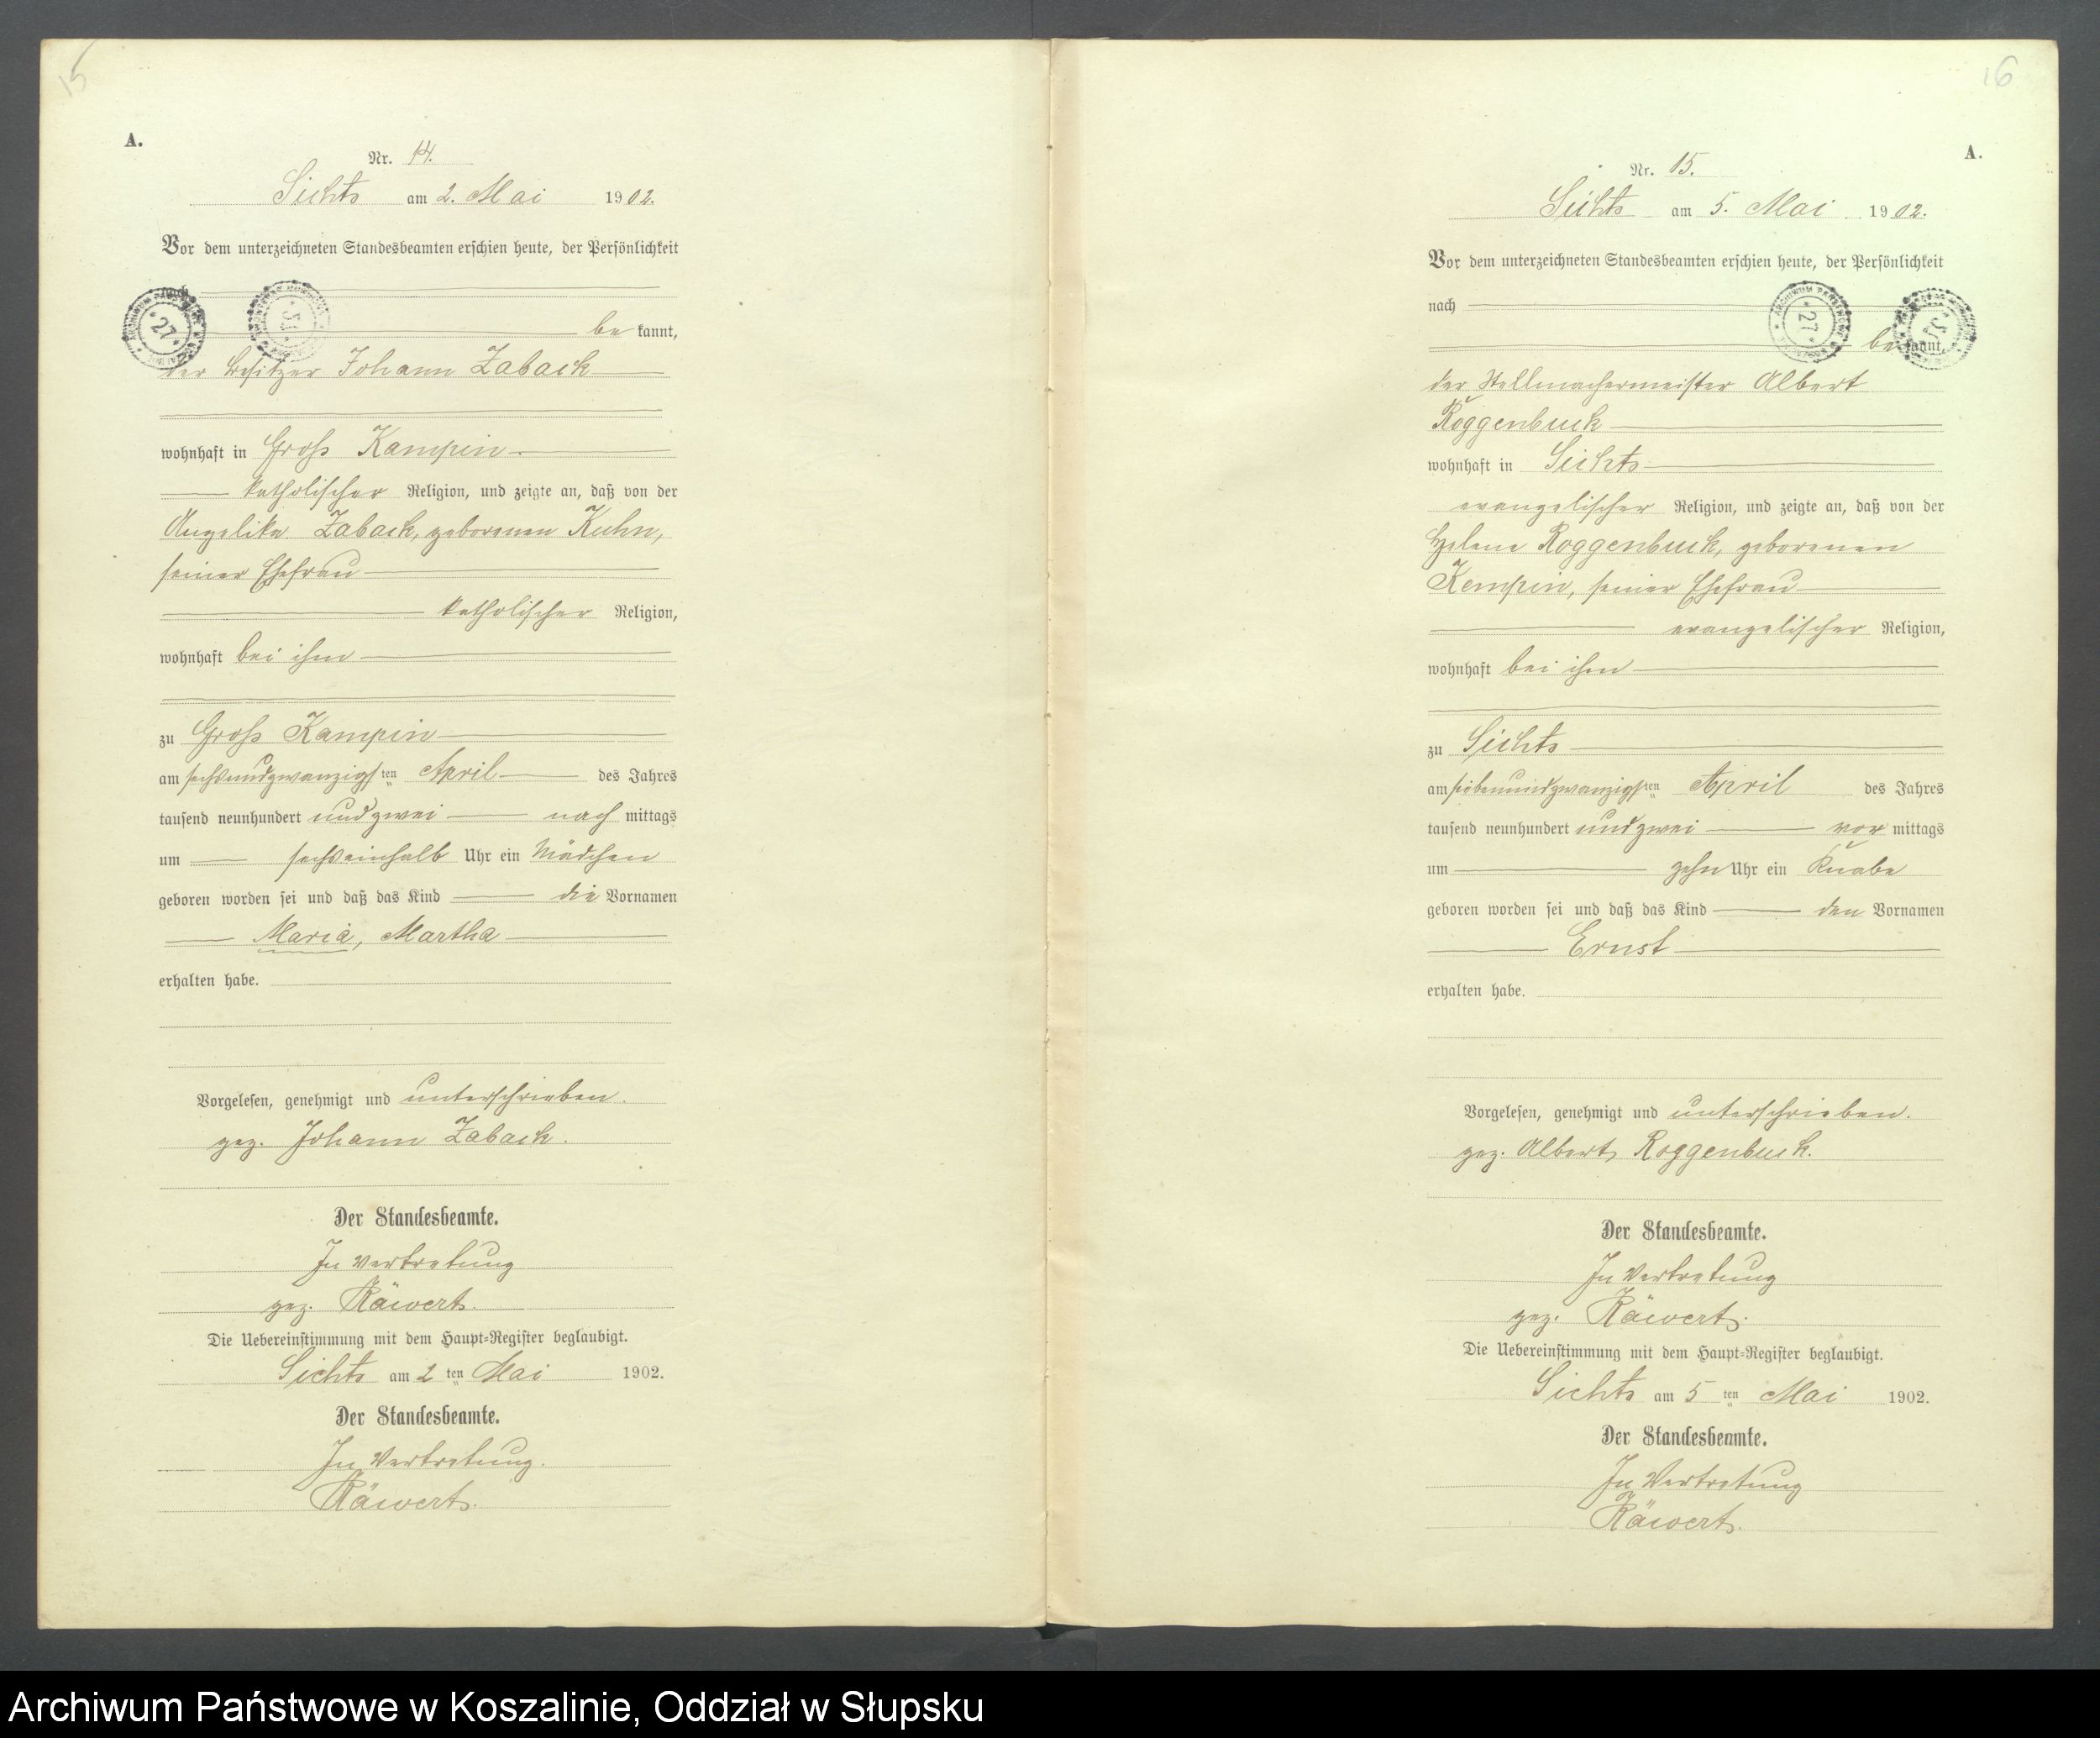 15
A.
Nr. 14.
Sichts am 2. Mai 1902.
Vor dem unterzeichneten Standesbeamten erschien heute, der Persönlichkeit
nach
bekannt,
der Besitzer Johann Zabach
wohnhaft in Groß Kampin
katholischer Religion, und zeigte an, daß von der
Angelika Zabach, geborenen Kuhn,
seiner Ehefrau
katholischer Religion,
wohnhaft bei ihm
zu Groß Kampin
am sechsundzwanzigsten April des Jahres
tausend neunhundert und zwei nachmittags
um sechseinhalb Uhr ein Mädchen
geboren worden sei und daß das Kind die Vornamen
Maria, Martha
erhalten habe.
Vorgelesen, genehmigt und unterschrieben.
gez. Johann Zabach.
Der Standesbeamte.
In Vertretung
gez. Räwert.
Die Uebereinstimmung mit dem Haupt=Register beglaubigt.
Sichts am 2ten Mai 1902.
Der Standesbeamte.
In Vertretung.
Räwert.
16
A.
Nr. 15.
Sichts am 5. Mai 1902.
Vor dem unterzeichneten Standesbeamten erschien heute, der Persönlichkeit
nach
bekannt,
der Stellmachermeister Albert
Roggenbuck
wohnhaft in Sichts
evangelischer Religion, und zeigte an, daß von der
Helene Roggenbuck, geborenen
Kempin, seiner Ehefrau
evangelischer Religion,
wohnhaft bei ihm
zu Sichts
am siebenundzwanzigsten April des Jahres
tausend neunhundert und zwei vormittags
um zehn Uhr ein Knabe
geboren worden sei und daß das Kind den Vornamen
Ernst
erhalten habe.
Vorgelesen, genehmigt und unterschrieben.
gez. Albert Roggenbuck.
Der Standesbeamte.
In Vertretung
gez. Räwert.
Die Uebereinstimmung mit dem Haupt=Register beglaubigt.
Sichts am 5ten Mai 1902.
Der Standesbeamte.
In Vertretung
Räwert.
Archiwum Państwowe w Koszalinie, Oddział w Słupsku